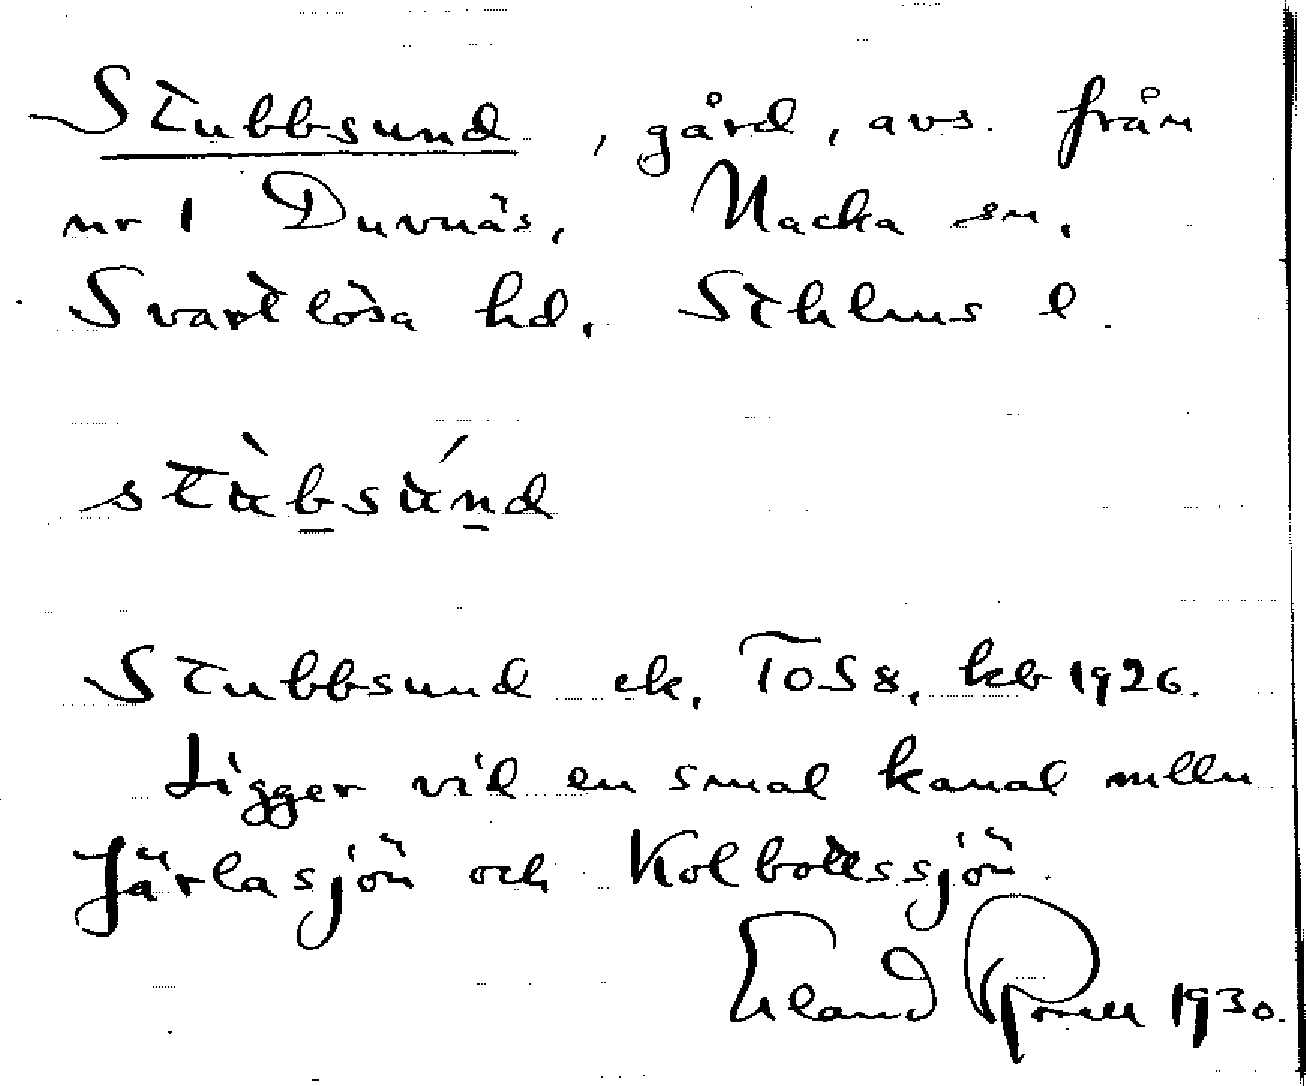 Stubbsund, gård, avs. från
nr 1 Duvnäs, Nacka sn,
Svartlösa hd, Sthlms l.
stùbsúnd
Stubbsund ek, ToS 8, kb 1926.
Ligger vid en smal kanal mellan
Järlasjön och Kolbottssjön.
Erland Rosell 1930.